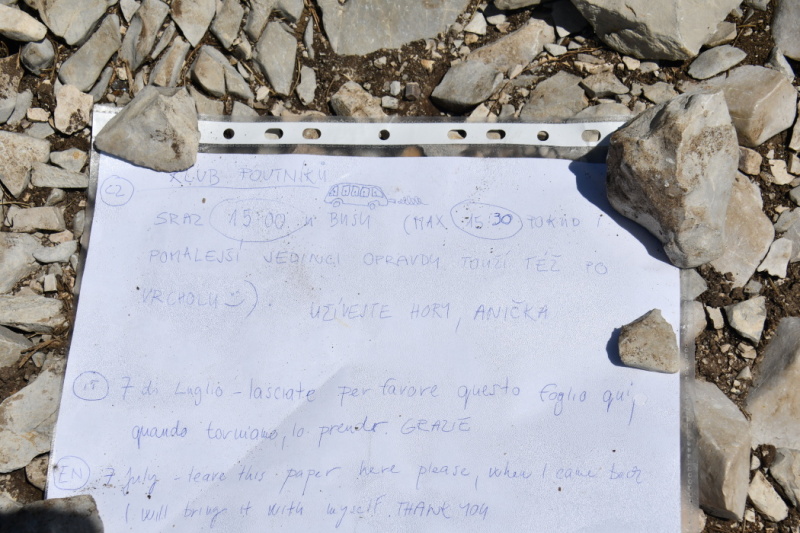 CZ KLUB POUTNÍKŮ
SRAZ 15:00 U BUSU (MAX. 15:30 POKUD I
POMALEJŠÍ JEDINCI OPRAVDU TOUŽÍ TÉŽ PO
VRCHOLU ☺). UŽÍVEJTE HORY, ANIČKA
IT 7 di Luglio - lasciate per favore questo foglio qui,
quando torniamo, lo prendo. GRAZIE
EN 7 July - leave this paper here please, when I came back
I will brings it with myself. THANK YOU